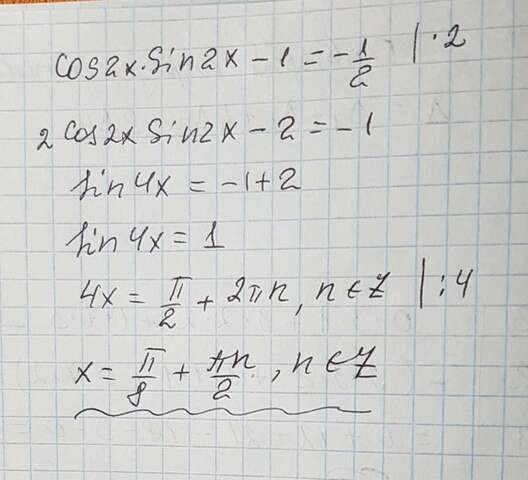 cos2x·sin2x − 1 = −1/2 | ·2
2 cos2x sin2x − 2 = −1
sin4x = −1+2
sin4x = 1
4x = π/2 + 2πn, n∈Z | :4
x = π/8 + πn/2, n∈Z